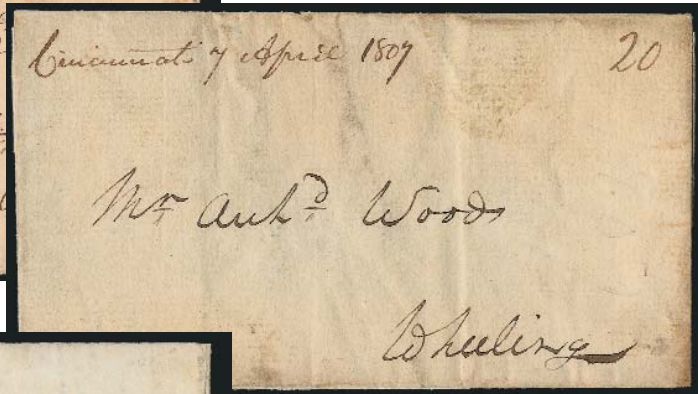 Cincinnati 7 April 1807 20
Mr Archd Woods
Wheeling